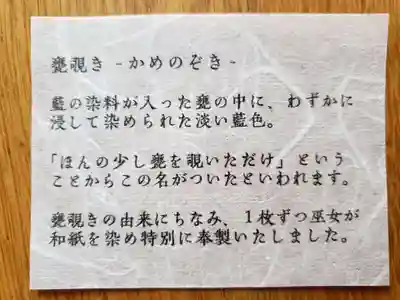 甕覗き -かめのぞき-
藍の染料が入った甕の中に、わずかに
浸して染められた淡い藍色。
「ほんの少し甕を覗いただけ」という
ことからこの名がついたといわれます。
甕覗きの由来にちなみ、1枚ずつ巫女が
和紙を染め特別に奉製いたしました。